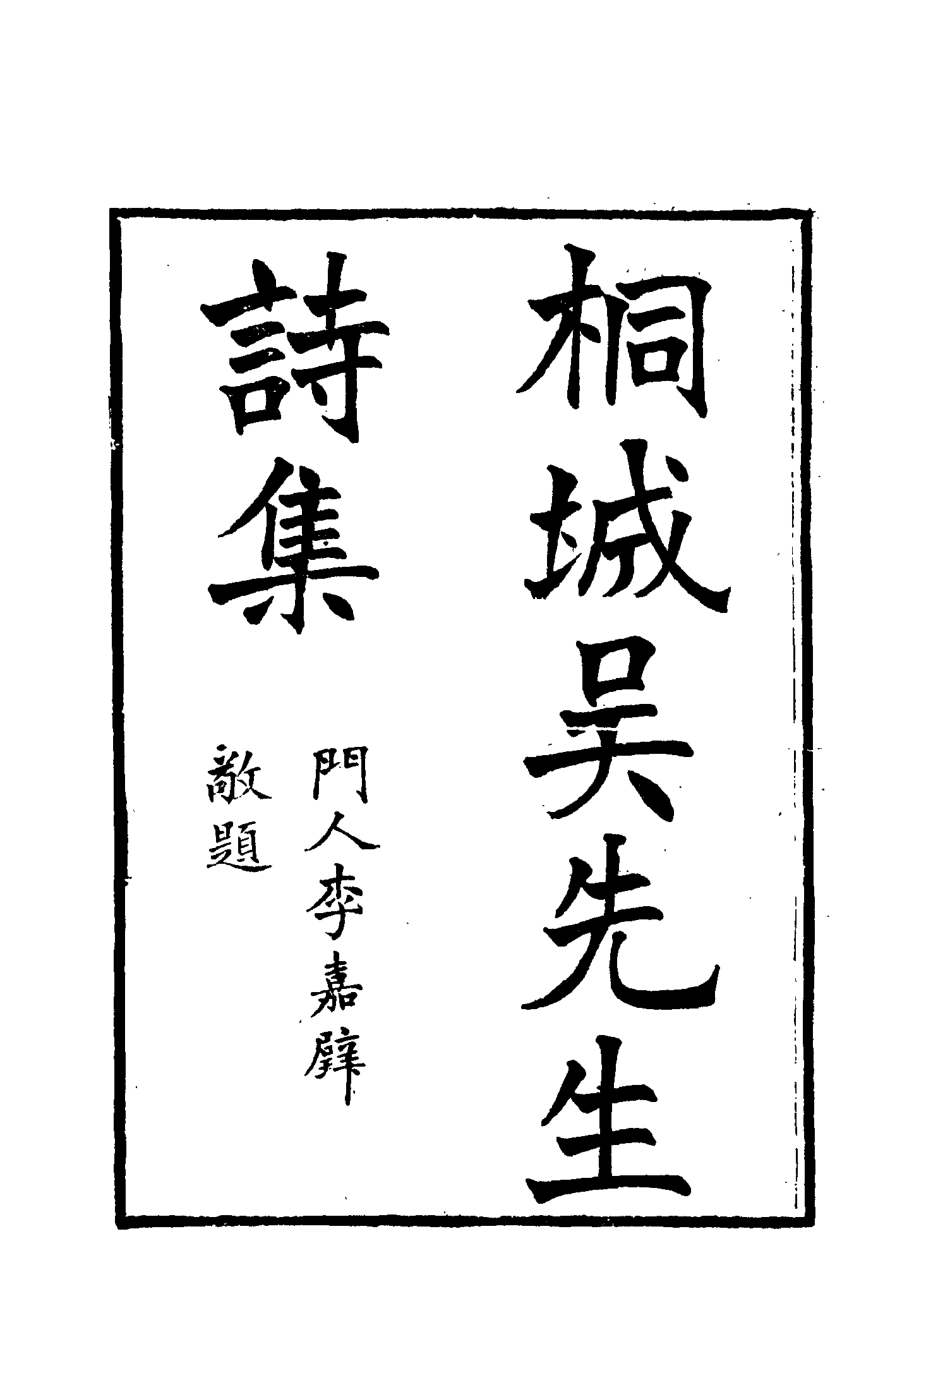 桐城吴先生
詩集
門人李嘉璧
敬題